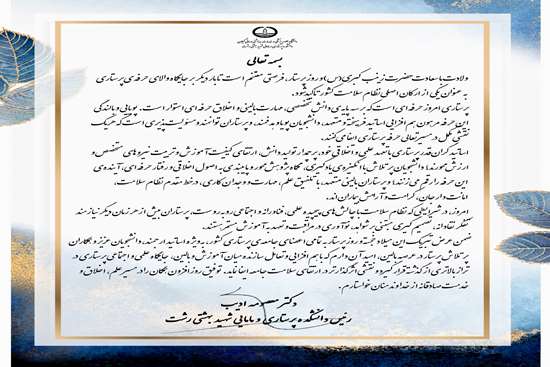 بسمه تعالی
ولادت با سعادت حضرت زینب کبری (س) و روز پرستار، فرصتی مغتنم است تا بار دیگر بر جایگاه والای حرفه‌ی پرستاری
به عنوان یکی از ارکان اصلی نظام سلامت کشور تأکید شود.
پرستاری امروز حرفه‌ای است که بر سه پایه‌ی دانش تخصصی، مهارت بالینی و اخلاق حرفه‌ای استوار است. پویایی و بالندگی
این حرفه مرهون هم‌افزایی اساتید فرهیخته و متعهد، دانشجویان پویا و هدفمند، و پرستاران توانمند و مسئولیت‌پذیری است که هر یک
نقشی مکمل در مسیر تعالی حرفه پرستاری ایفا می‌کنند.
اساتید گران‌قدر پرستاری با تعهد علمی و اخلاقی خود، پرچمدار تولید دانش، ارتقای کیفیت آموزش و تربیت نیروهای متخصص و
ارزش‌مدارند؛ دانشجویان پرتلاش با انگیزه‌ی یادگیری، نگاه پژوهش‌محور و پایبندی به اصول اخلاقی و رفتار حرفه‌ای، آینده‌ی
این حرفه را رقم می‌زنند؛ و پرستاران بالینی متعهد، با تلفیق علم، مهارت و وجدان کاری، در خط مقدم نظام سلامت،
امانت‌دار جان، کرامت و آرامش بیماران‌اند.
امروز، در شرایطی که نظام سلامت با چالش‌های پیچیده علمی، فناورانه و اجتماعی روبه‌روست، پرستاران بیش از هر زمان دیگر نیازمند
تفکر نقادانه، تصمیم‌گیری مبتنی بر شواهد، نوآوری در مراقبت و تعهد به آموزش مستمر هستند.
ضمن عرض تبریک این میلاد خجسته و روز پرستار به تمامی اعضای جامعه‌ی پرستاری کشور، به ویژه اساتید ارجمند، دانشجویان عزیز و همکاران
پرتلاش پرستار در عرصه بالین، امید آن دارم که با هم‌افزایی و تعامل سازنده میان آموزش و بالین، جایگاه علمی و اجتماعی پرستاری در
ترازی بالاتر از گذشته قرار گیرد و نقشی اثرگذارتر در ارتقای سلامت جامعه ایفا نماید. توفیق روزافزون همگان را در مسیر علم، اخلاق و
خدمت صادقانه از خداوند منان خواستارم.
دکتر معصومه ادیب
رئیس دانشکده پرستاری و مامایی شهید بهشتی رشت